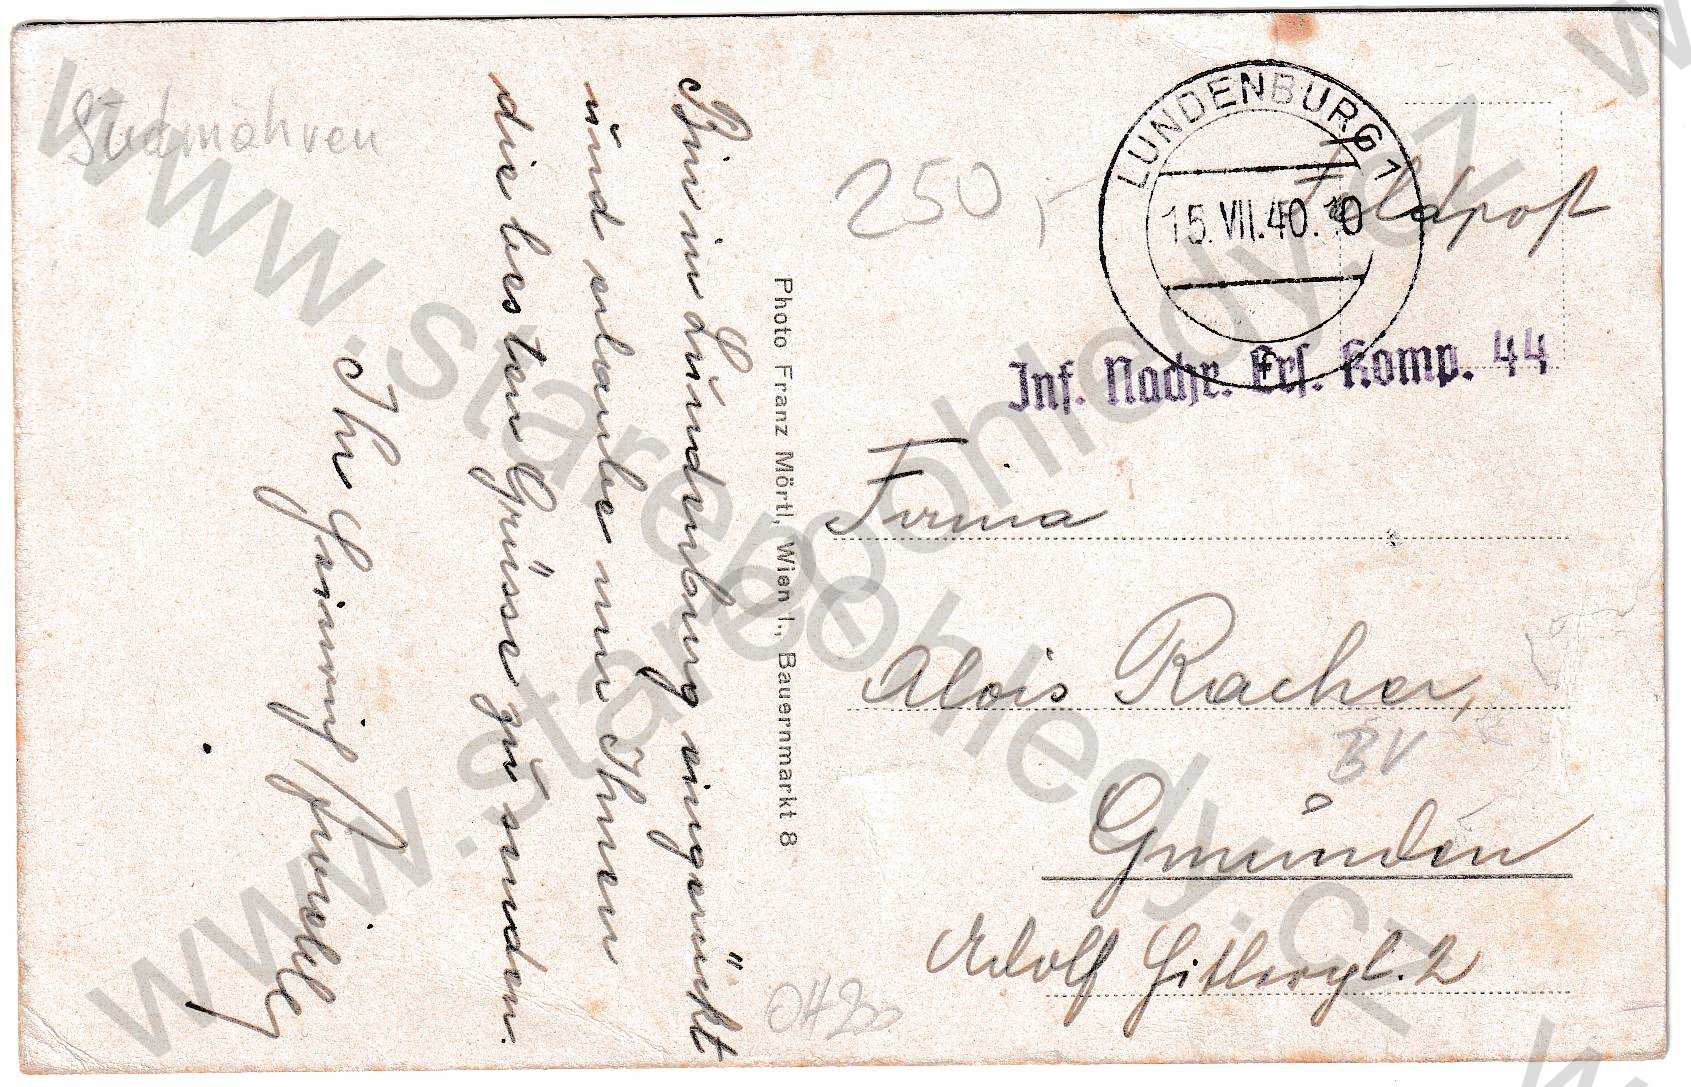 Südmähren
Bin in Lundenburg eingerückt
und erlaube mir Ihnen
die besten Grüsse zu senden.
Ihr
Photo Franz Mörtl, Wien I., Bauernmarkt 8
250,-
LUNDENBURG 1
15.VII.40.10
Feldpost
Inf. Nachr. Ers. Komp. 44
Firma
Alois Racher,
BV
Gmünden
Adolf Hitlerpl. 2
www.starepohledy.cz
www.starepohledy.cz